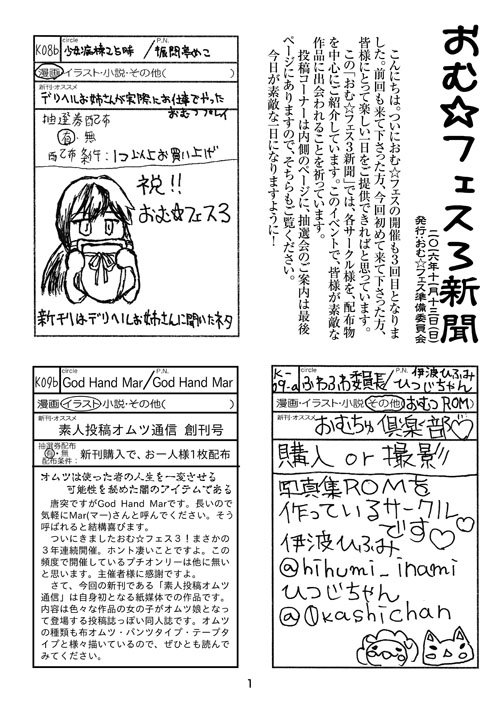 おむ☆フェス3新聞
二〇一六年十一月十三日(日)
発行:おむ☆フェス準備委員会
こんにちは。ついにおむ☆フェスの開催も3回目となりま
した。前回も来て下さった方、今回初めて来て下さった方、
皆様にとって楽しい一日をご提供できればと思っています。
この「おむ☆フェス3新聞」では、各サークル様を、配布物
を中心にご紹介しています。このイベントで、皆様が素敵な
作品に出会われることを祈っています。
投稿コーナーは内側のページに、抽選会のご案内は最後
ページにありますので、そちらもご覧ください。
今日が素敵な一日になりますように!
K08b
circle
P.N.
漫画・イラスト・小説・その他( )
新刊・オススメ
デリヘルお姉さんが実際にお仕事でやった
おむつプレイ
抽選券配布
有・無
配布条件:1つ以上お買い上げ
祝!!
おむ☆フェス3
新刊はデリヘルお姉さんに聞いたネタ
K-09-a
circle
ふわふわ委員長/
P.N.
伊波ひふみ
ひつじちゃん
漫画・イラスト・小説・その他(おむつROM)
新刊・オススメ
おむちゅ倶楽部♡
購入 or 撮影!!
写真集ROMを
作っているサークル
です♡
伊波ひふみ
@hihumi_inami
ひつじちゃん
@Okashichan
K09b
circle
God Hand Mar/
P.N.
God Hand Mar
漫画・イラスト・小説・その他( )
新刊・オススメ
素人投稿オムツ通信 創刊号
抽選券配布
有・無
配布条件:
新刊購入で、お一人様1枚配布
オムツは使った者の人生を一変させる
可能性を秘めた闇のアイテムである
唐突ですがGod Hand Marです。長いので
気軽にMar(マー)さんと呼んでください。そう
呼ばれると結構喜びます。
ついにきましたおむ☆フェス3!まさかの
3年連続開催。ホント凄いことですよ。この
頻度で開催しているプチオンリーは他に無い
と思います。主催者様に感謝ですよ。
さて、今回の新刊である「素人投稿オムツ
通信」は自身初となる紙媒体での作品です。
内容は色々な作品の女の子がオムツ娘となっ
て登場する投稿誌っぽい同人誌です。オムツ
の種類も布オムツ・パンツタイプ・テープタ
イプと様々描いているので、ぜひとも読んで
みてください。
1